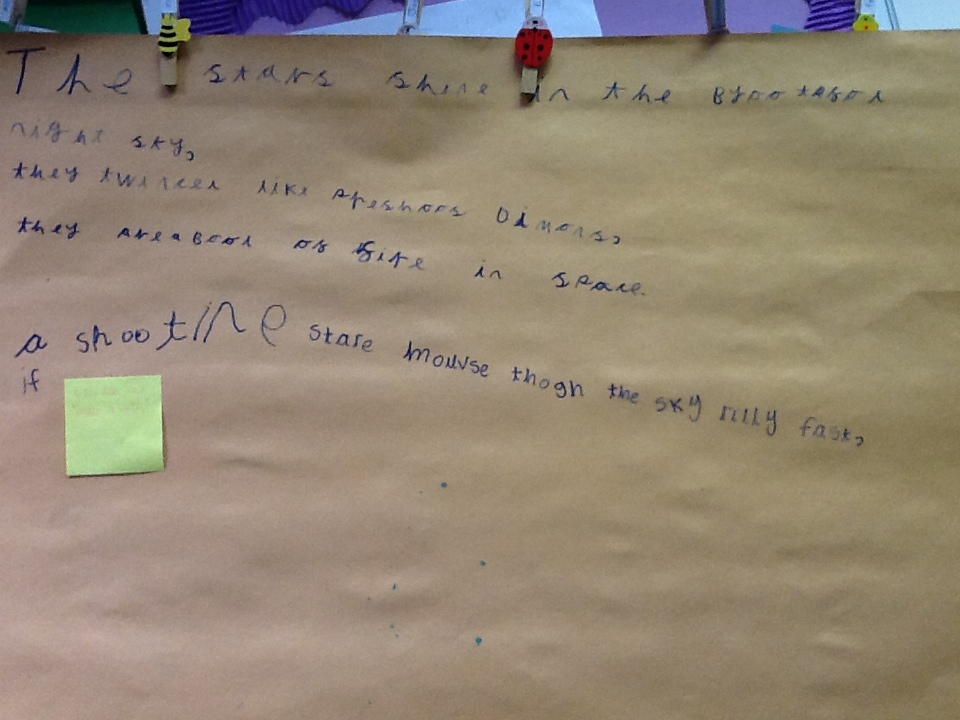 The stars shine in the Byootasol
night sky,
they twincel like preshoos Dimons,
they are a Bool of fire in space.
a shootine stare mouvse thogh the sky rilly fast,
if